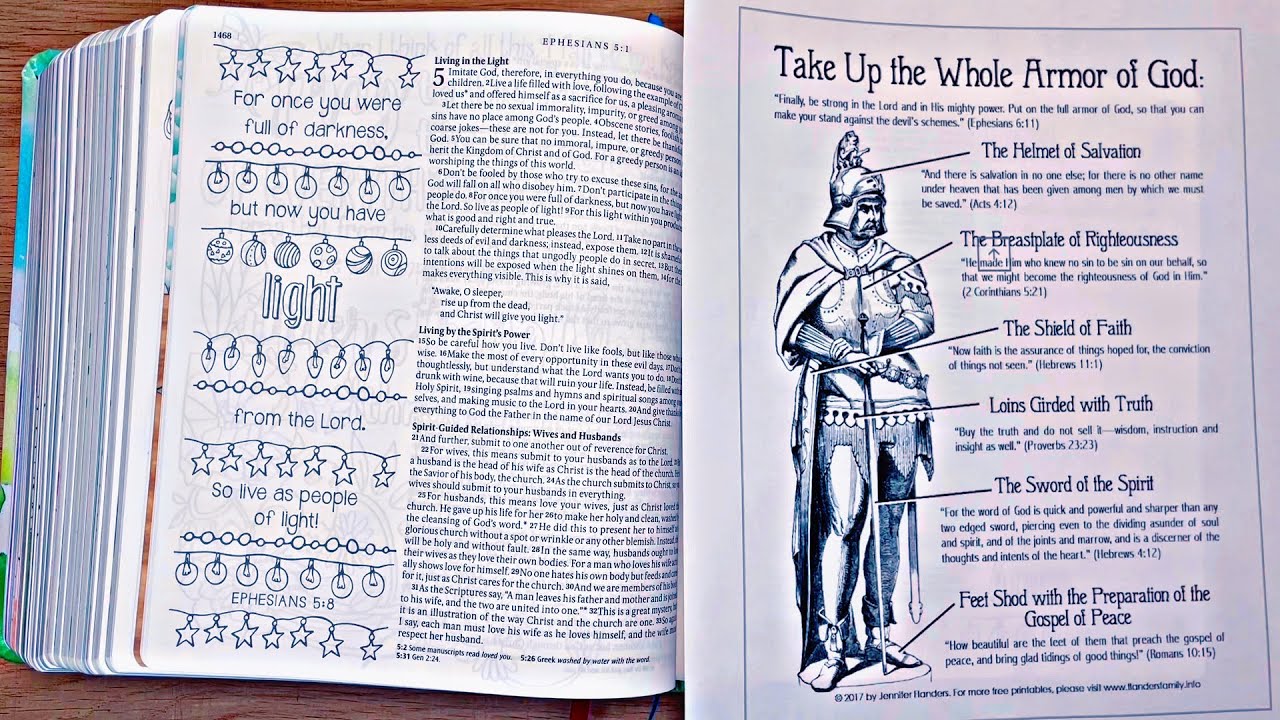 1468
EPHESIANS 5:1
For once you were
full of darkness,
but now you have
light
from the Lord.
So live as people
of light!
EPHESIANS 5:8
Living in the Light
5 Imitate God, therefore, in everything you do, because you are
children. 2Live a life filled with love, following the example of
loved us* and offered himself as a sacrifice for us, a pleasing
3Let there be no sexual immorality, impurity, or greed among
sins have no place among God's people. 4Obscene stories,
coarse jokes—these are not for you. Instead, let there be
God. 5You can be sure that no immoral, impure, or greedy person
herit the Kingdom of Christ and of God. For a greedy person is an
worshiping the things of this world.
6Don't be fooled by those who try to excuse these sins, for the
God will fall on all who disobey him. 7Don't participate in the
people do. 8For once you were full of darkness, but now you have
the Lord. So live as people of light! 9For this light within you
what is good and right and true.
10Carefully determine what pleases the Lord. 11Take no part in the
less deeds of evil and darkness; instead, expose them. 12It is
to talk about the things that ungodly people do in secret. 13But
intentions will be exposed when the light shines on them, 14for the
makes everything visible. This is why it is said,
"Awake, O sleeper,
rise up from the dead,
and Christ will give you light."
Living by the Spirit's Power
15So be careful how you live. Don't live like fools, but like those
wise. 16Make the most of every opportunity in these evil days. 17
thoughtlessly, but understand what the Lord wants you to do. 18
drunk with wine, because that will ruin your life. Instead, be filled
Holy Spirit, 19singing psalms and hymns and spiritual songs among
selves, and making music to the Lord in your hearts. 20And give
everything to God the Father in the name of our Lord Jesus Christ.
Spirit-Guided Relationships: Wives and Husbands
21And further, submit to one another out of reverence for Christ.
22For wives, this means submit to your husbands as to the Lord.
a husband is the head of his wife as Christ is the head of the church.
the Savior of his body, the church. 24As the church submits to Christ,
wives should submit to your husbands in everything.
25For husbands, this means love your wives, just as Christ loved
church. He gave up his life for her 26to make her holy and clean,
the cleansing of God's word.* 27He did this to present her to himself
glorious church without a spot or wrinkle or any other blemish. Instead,
will be holy and without fault. 28In the same way, husbands ought to
their wives as they love their own bodies. For a man who loves his wife
ally shows love for himself. 29No one hates his own body but feeds and
for it, just as Christ cares for the church. 30And we are members of his
31As the Scriptures say, "A man leaves his father and mother and is
to his wife, and the two are united into one."* 32This is a great mystery,
it is an illustration of the way Christ and the church are one. 33So
I say, each man must love his wife as he loves himself, and the wife
respect her husband.
5:2 Some manuscripts read loved you. 5:26 Greek washed by water with the word.
5:31 Gen 2:24.
Take Up the Whole Armor of God:
"Finally, be strong in the Lord and in His mighty power. Put on the full armor of God, so that you can
make your stand against the devil's schemes." (Ephesians 6:11)
The Helmet of Salvation
"And there is salvation in no one else; for there is no other name
under heaven that has been given among men by which we must
be saved." (Acts 4:12)
The Breastplate of Righteousness
"He made Him who knew no sin to be sin on our behalf, so
that we might become the righteousness of God in Him."
(2 Corinthians 5:21)
The Shield of Faith
"Now faith is the assurance of things hoped for, the conviction
of things not seen." (Hebrews 11:1)
Loins Girded with Truth
"Buy the truth and do not sell it—wisdom, instruction and
insight as well." (Proverbs 23:23)
The Sword of the Spirit
"For the word of God is quick and powerful and sharper than any
two edged sword, piercing even to the dividing asunder of soul
and spirit, and of the joints and marrow, and is a discerner of the
thoughts and intents of the heart." (Hebrews 4:12)
Feet Shod with the Preparation of the
Gospel of Peace
"How beautiful are the feet of them that preach the gospel of
peace, and bring glad tidings of good things!" (Romans 10:15)
© 2017 by Jennifer Flanders. For more free printables, please visit www.flandersfamily.info